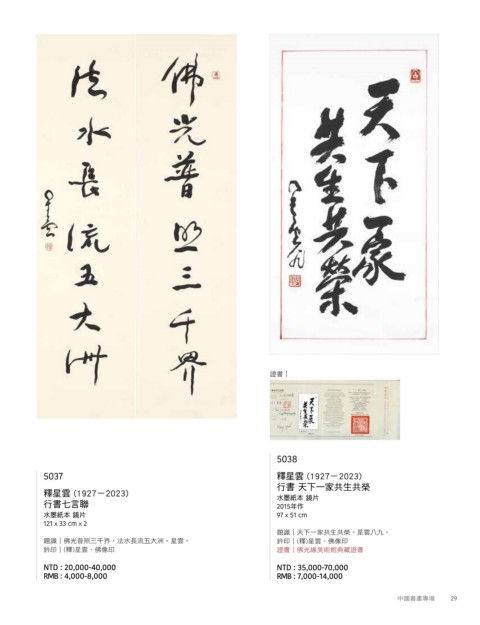 佛光普照三千界
法水長流五大洲
星雲
天下一家
共生共榮
星雲八九
證書｜
5037
釋星雲 (1927－2023)
行書七言聯
水墨紙本 鏡片
121 x 33 cm x 2
題識｜佛光普照三千界，法水長流五大洲。星雲。
鈐印｜(釋)星雲、佛像印
NTD : 20,000-40,000
RMB : 4,000-8,000
5038
釋星雲 (1927－2023)
行書 天下一家共生共榮
水墨紙本 鏡片
2015年作
97 x 51 cm
題識｜天下一家共生共榮。星雲八九。
鈐印｜(釋)星雲、佛像印
證書｜佛光緣美術館典藏證書
中國書畫專場 29